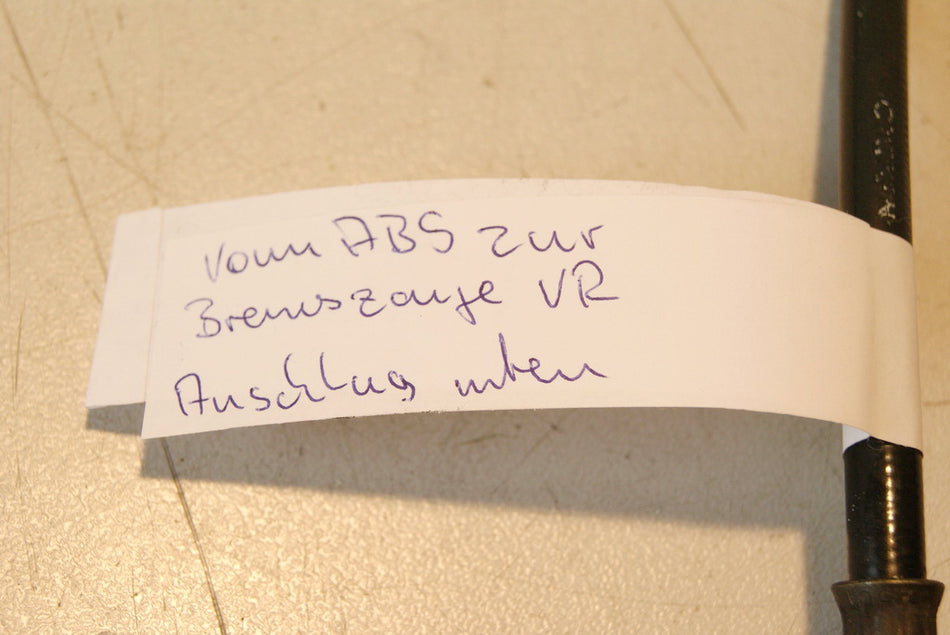 vom ABS zur
Bremszange VR
Anschluss unten